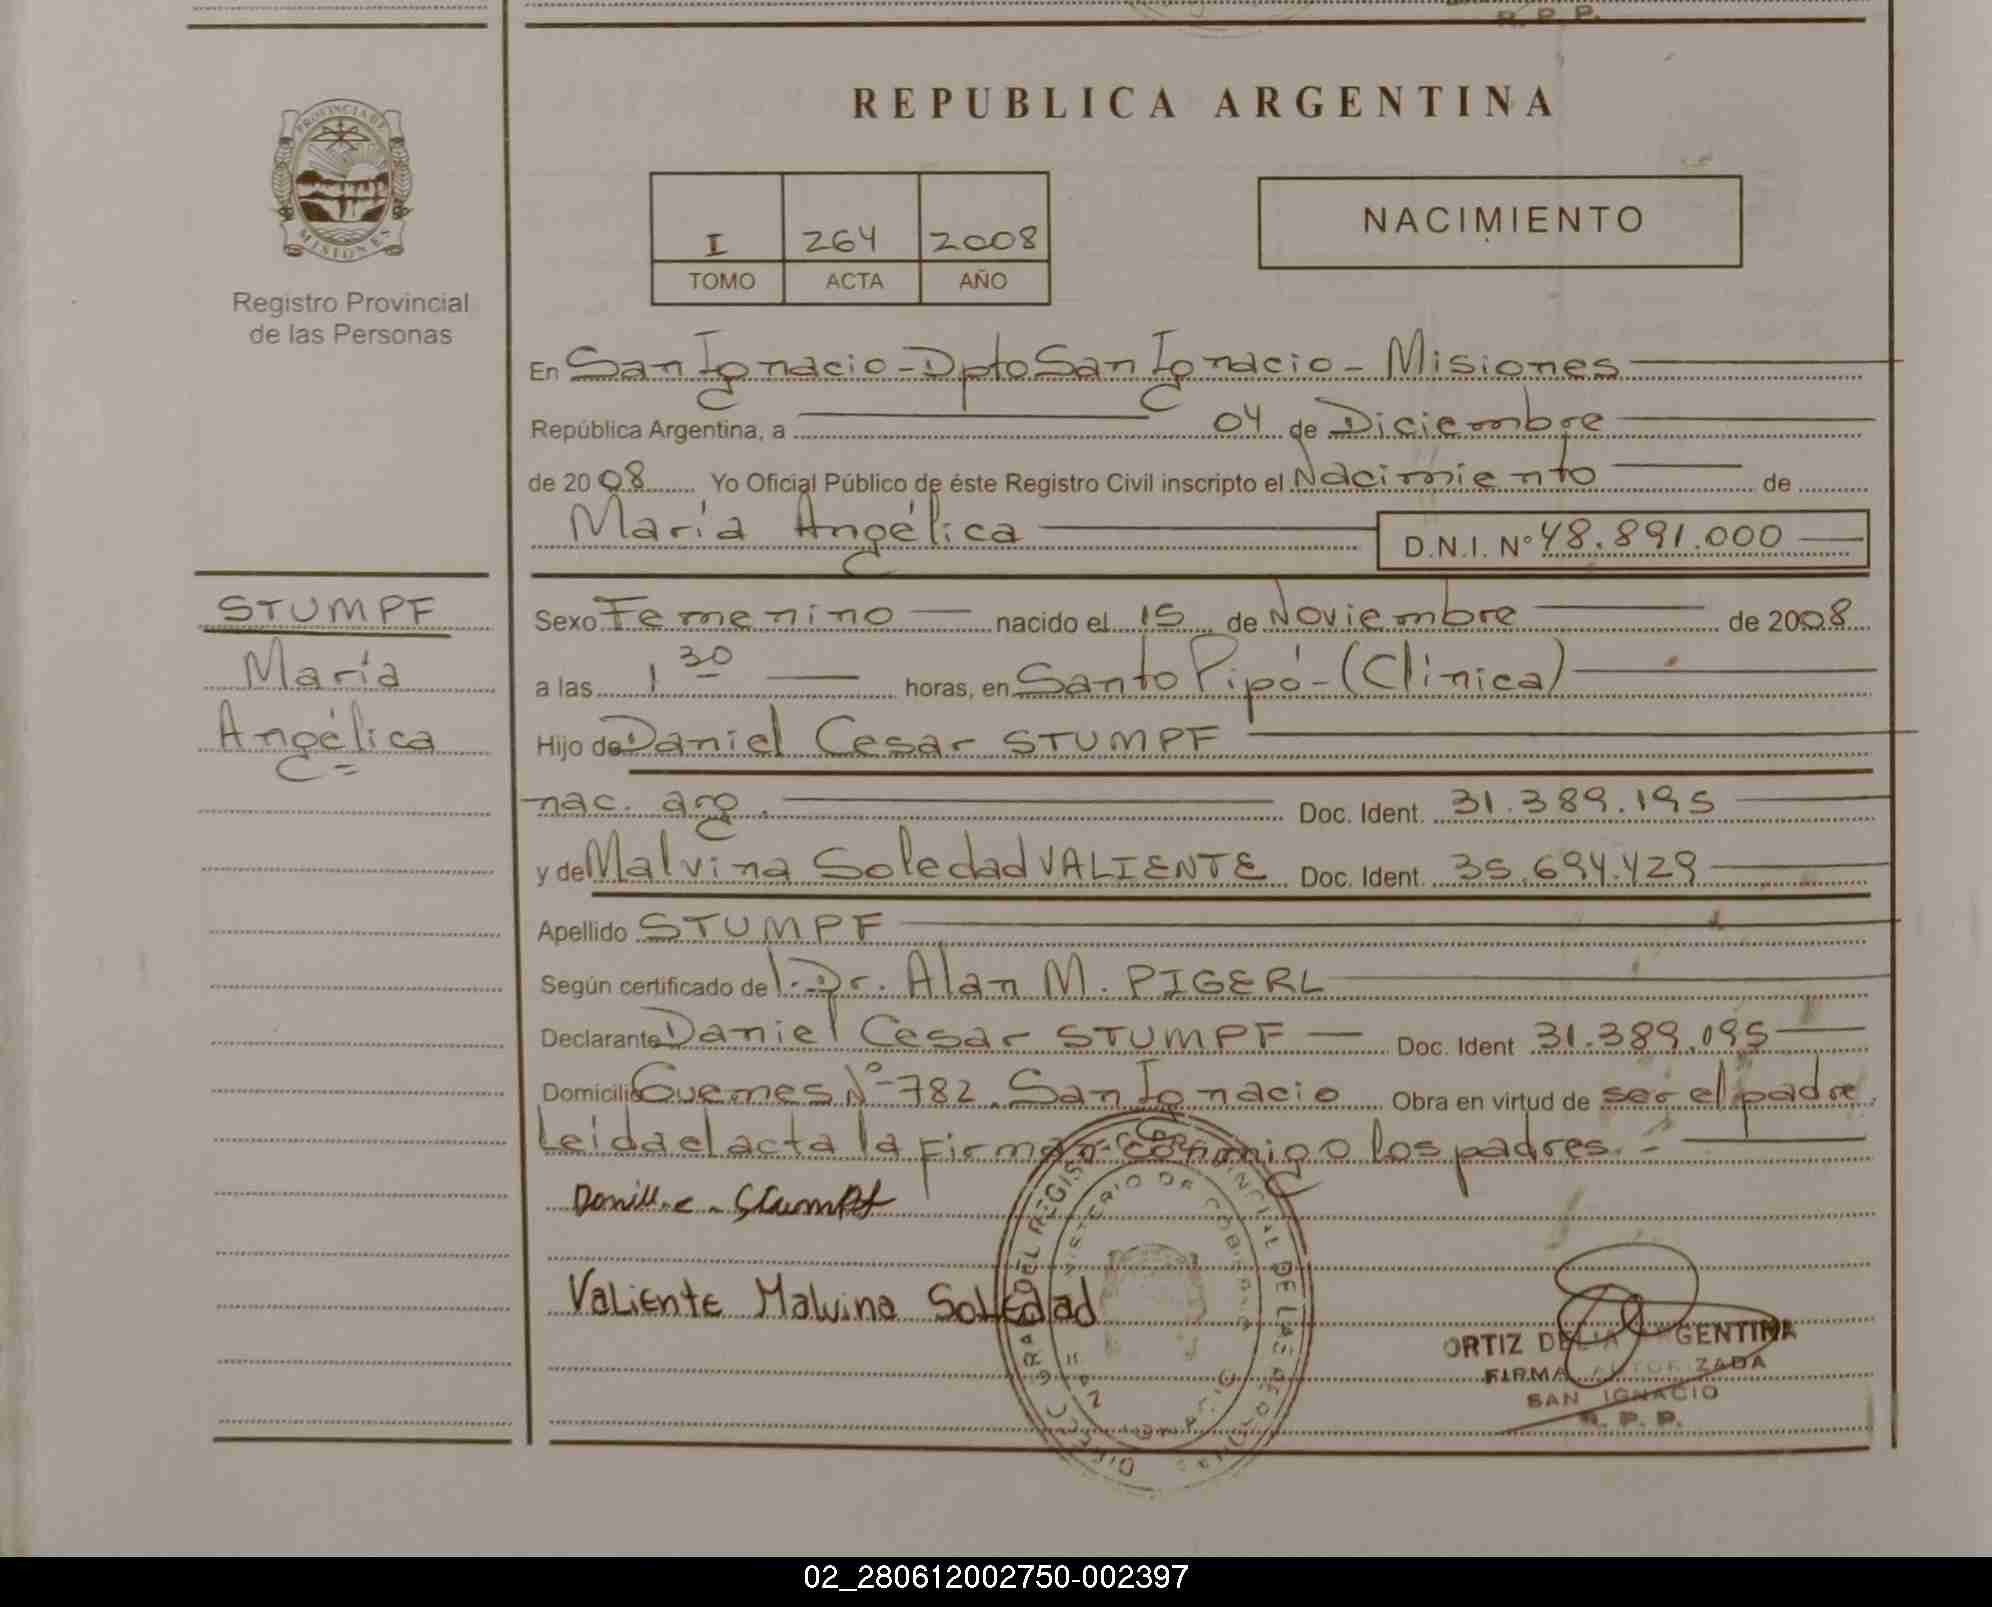 R. P. P.
PROVINCIA DE
MISIONES
Registro Provincial
de las Personas
REPUBLICA ARGENTINA
I 264 2008
TOMO ACTA AÑO
NACIMIENTO
En San Ignacio - Dpto San Ignacio - Misiones
República Argentina, a 04 de Diciembre
de 2008 Yo Oficial Público de éste Registro Civil inscripto el Nacimiento de
María Angélica D.N.I. Nº 48.891.000
STUMPF
María
Angélica
Sexo Femenino nacido el 15 de Noviembre de 2008
a las 1 30 horas, en Santo Pipó - (Clínica)
Hijo de Daniel Cesar STUMPF
nac. arg. Doc. Ident. 31.389.195
y de Malvina Soledad VALIENTE Doc. Ident. 35.694.429
Apellido STUMPF
Según certificado de l. Dr. Alan M. PIGERL
Declarante Daniel Cesar STUMPF Doc. Ident 31.389.095
Domicilio Guemes Nº 782. San Ignacio Obra en virtud de ser el padre.
Leida el acta la firman conmigo los padres. -
Stumpf
Valiente Malvina Soledad
ORTIZ DELIA GENTINA
FIRMA AUTORIZADA
SAN IGNACIO
R. P. P.
02_280612002750-002397